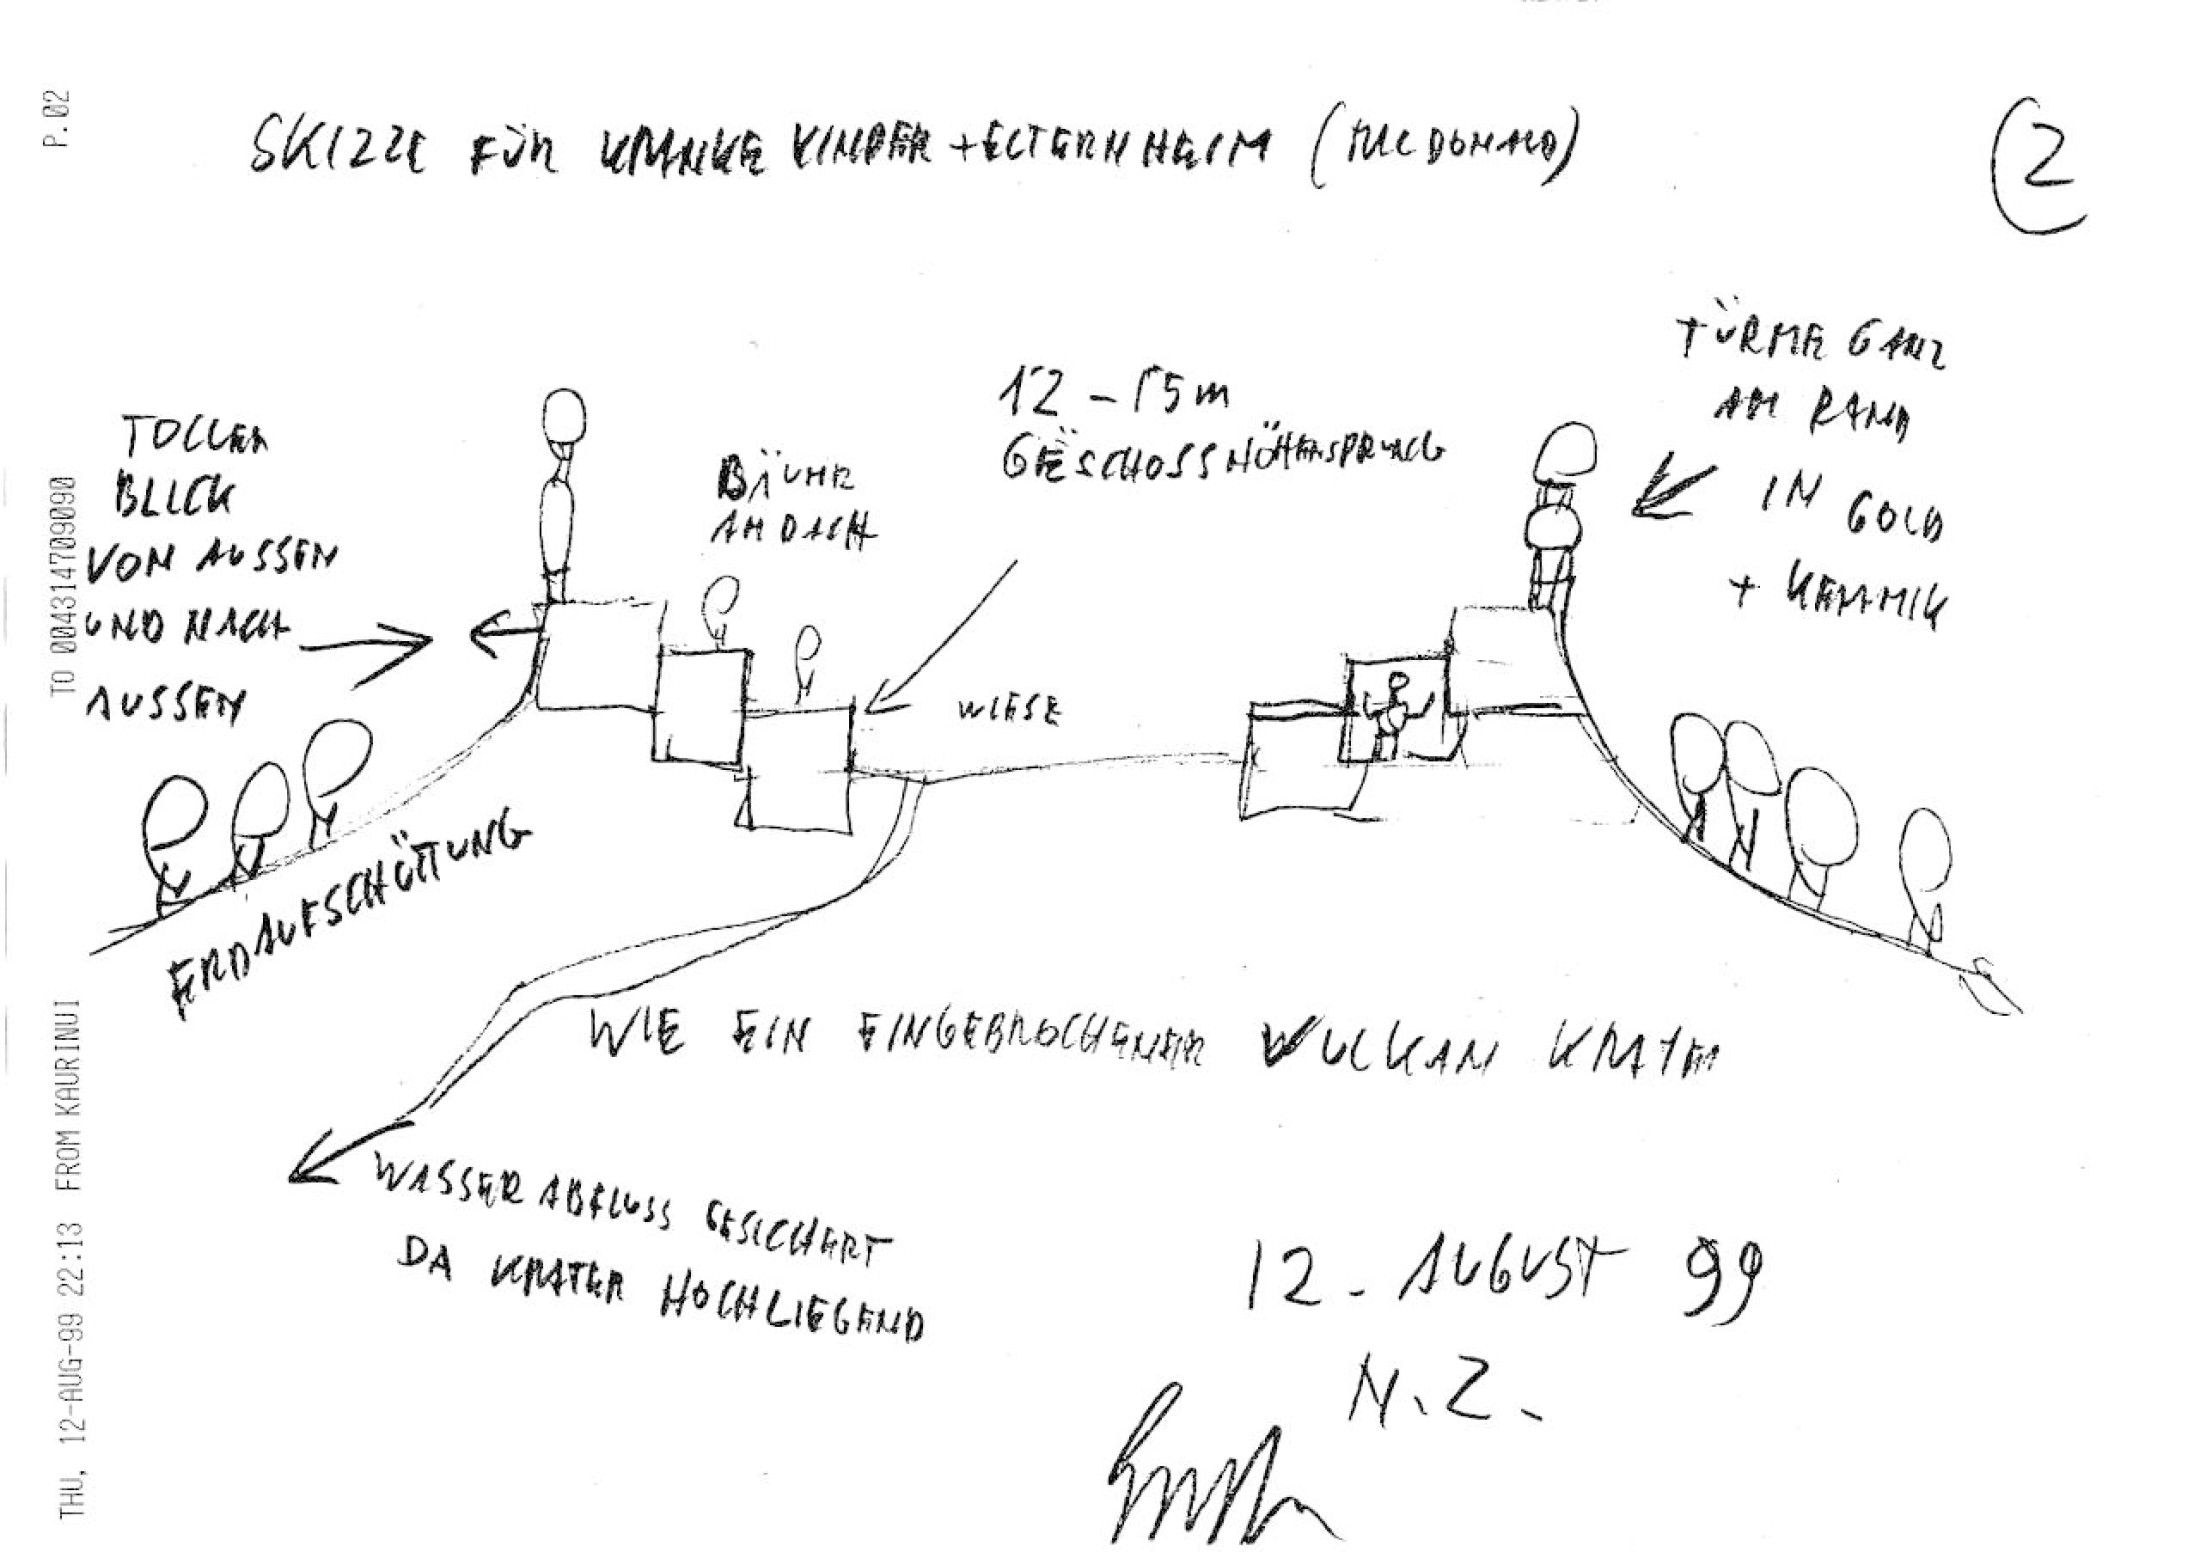 SKIZZE FÜR KRANKE KINDER + ELTERNHEIM (MCDONALD)
2
TÜRME GANZ
AM RAND
IN GOLD
+ KERAMIK
12 - 15 m
GESCHOSSHÖHENSPRUNG
TOLLER
BLICK
VON AUSSEN
UND NACH
AUSSEN
BÄUME
AM DACH
WIESE
ERDAUFSCHÜTTUNG
WIE EIN EINGEBROCHENER VULKAN KRATER
WASSER ABFLUSS GESICHERT
DA KRATER HOCHLIEGEND
12. AUGUST 99
N.Z.
THU, 12-AUG-99 22:13 FROM KAURINUI TO 004314709090 P.02